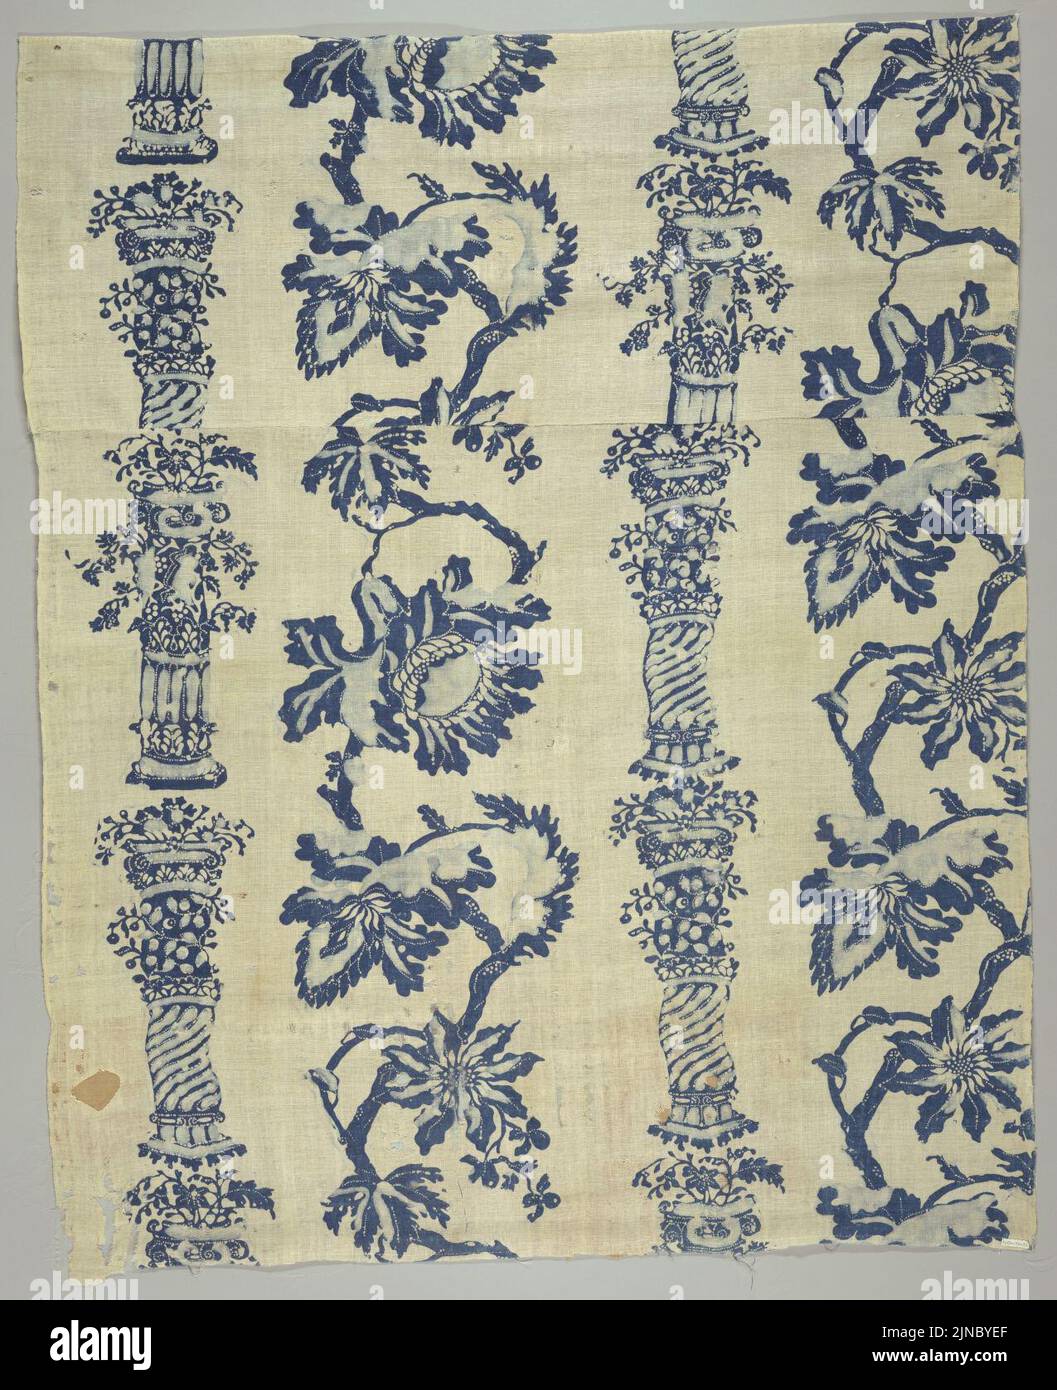 alamy
Image ID: 2JNBYEF
www.alamy.com